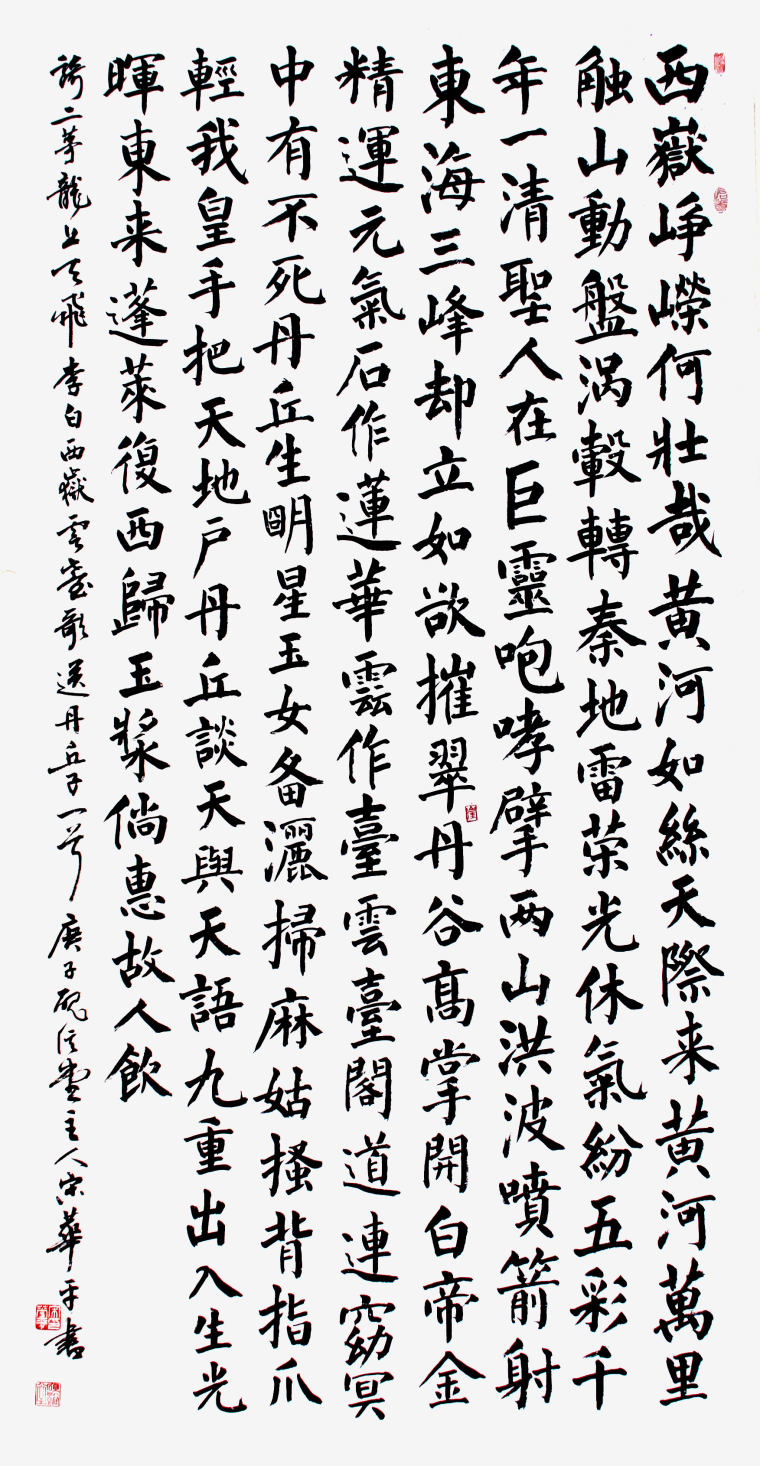 西嶽峥嶸何壯哉黄河如絲天際来黄河萬里
触山動盤渦轂轉秦地雷荣光休氣紛五彩千
年一清聖人在巨靈咆哮擘两山洪波噴箭射
東海三峰却立如欲摧翠丹谷髙掌開白帝金
精運元氣石作蓮華雲作臺雲臺閣道連窈冥
中有不死丹丘生明星玉女备灑掃麻姑搔背指爪
輕我皇手把天地户丹丘談天與天語九重出入生光
暉東来蓬萊復西歸玉漿倘惠故人飲
騎二茅龍上天飛李白西嶽雲臺歌送丹丘子一首庚子砚信堂主人宋華平書